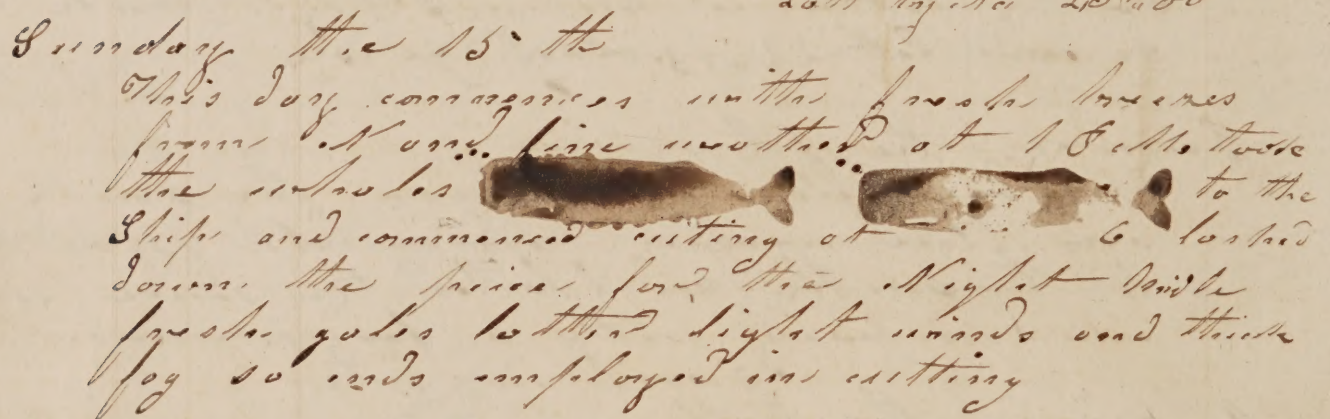 Sunday the 15 th
This day commences with fresh breezes
from N and fine weather at 1 PM took
the whales to the
Ship and commenced cutting at 6 lashed
down the piece for the Night Midle
fresh gales latter light winds and thick
fog so ends employed in cutting